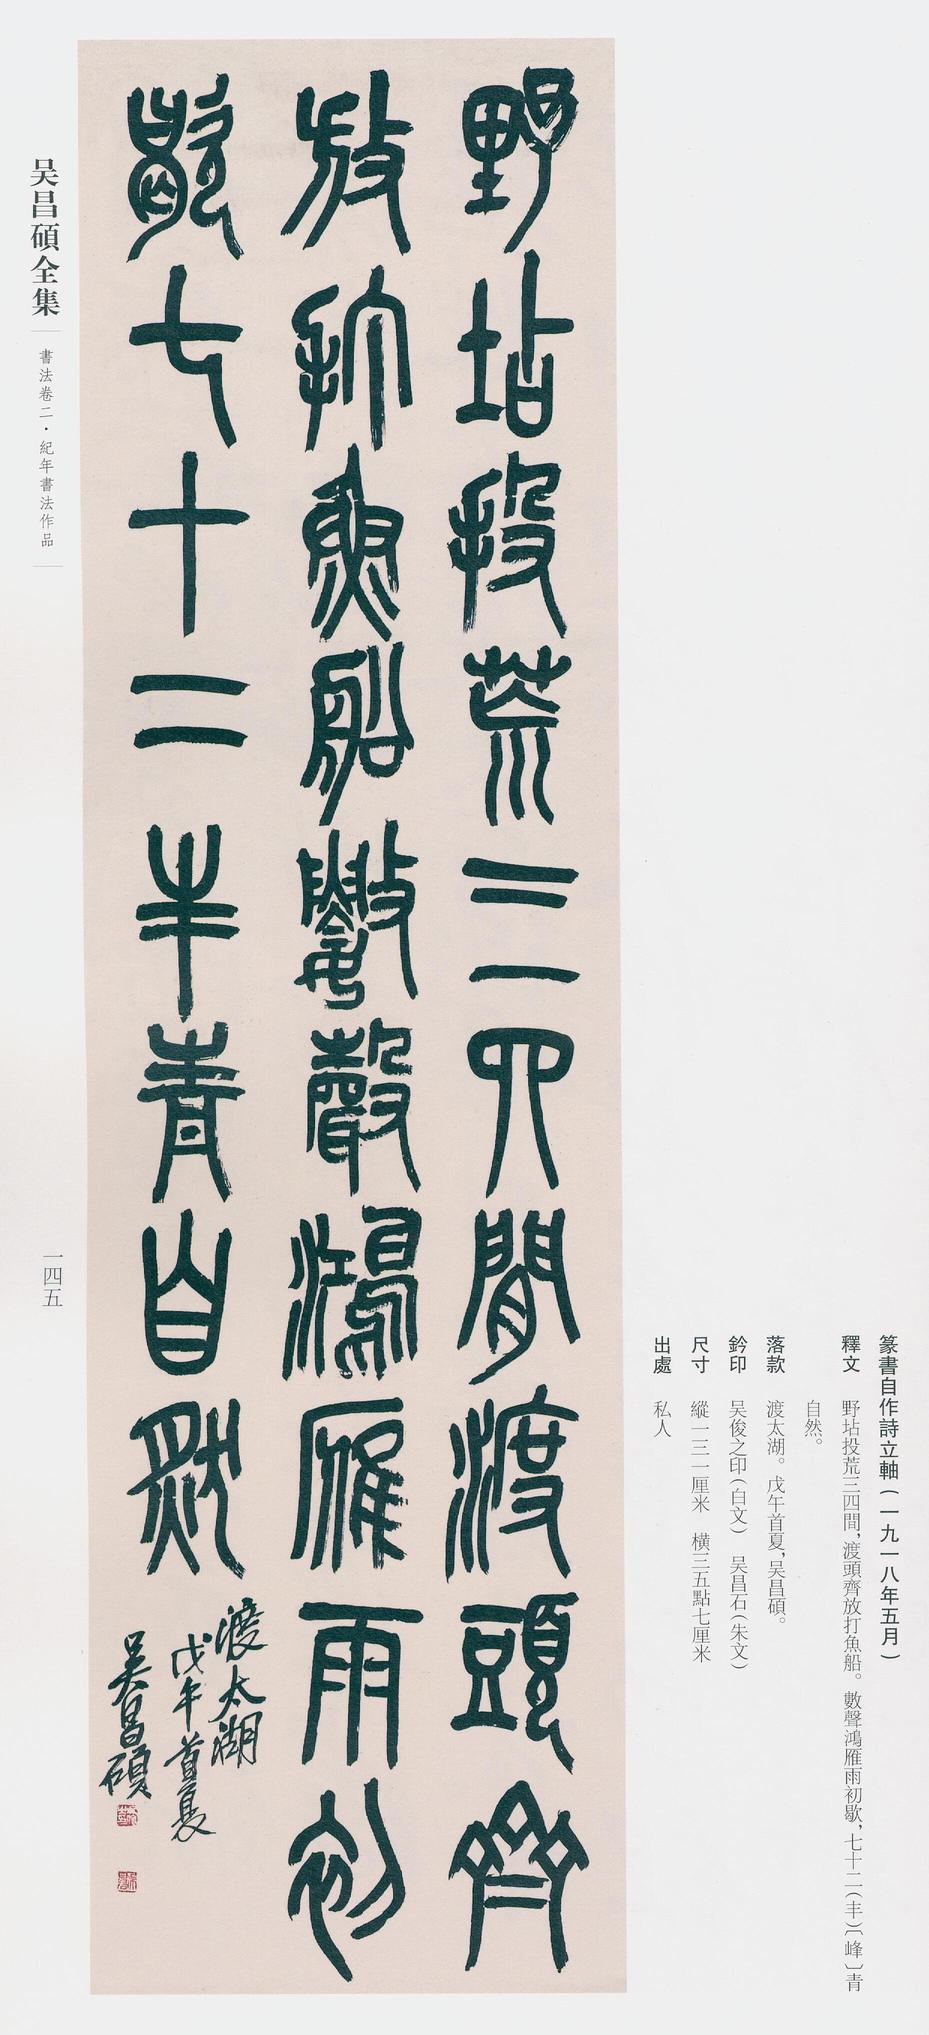 篆書自作詩立軸(一九一八年五月)
釋文 野坫投荒三四間,渡頭齊放打魚船。數聲鴻雁雨初歇,七十二(丰)〔峰〕青
自然。
落款 渡太湖。戊午首夏,吴昌碩。
鈐印 吴俊之印(白文) 吴昌石(朱文)
尺寸 縱一三一厘米 橫三五點七厘米
出處 私人
野坫投荒三四間渡頭齊
放打魚船數聲鴻雁雨初
歇七十二丰青自然
渡太湖
戊午首夏
吴昌碩
吴昌碩全集
書法卷二·紀年書法作品
一四五